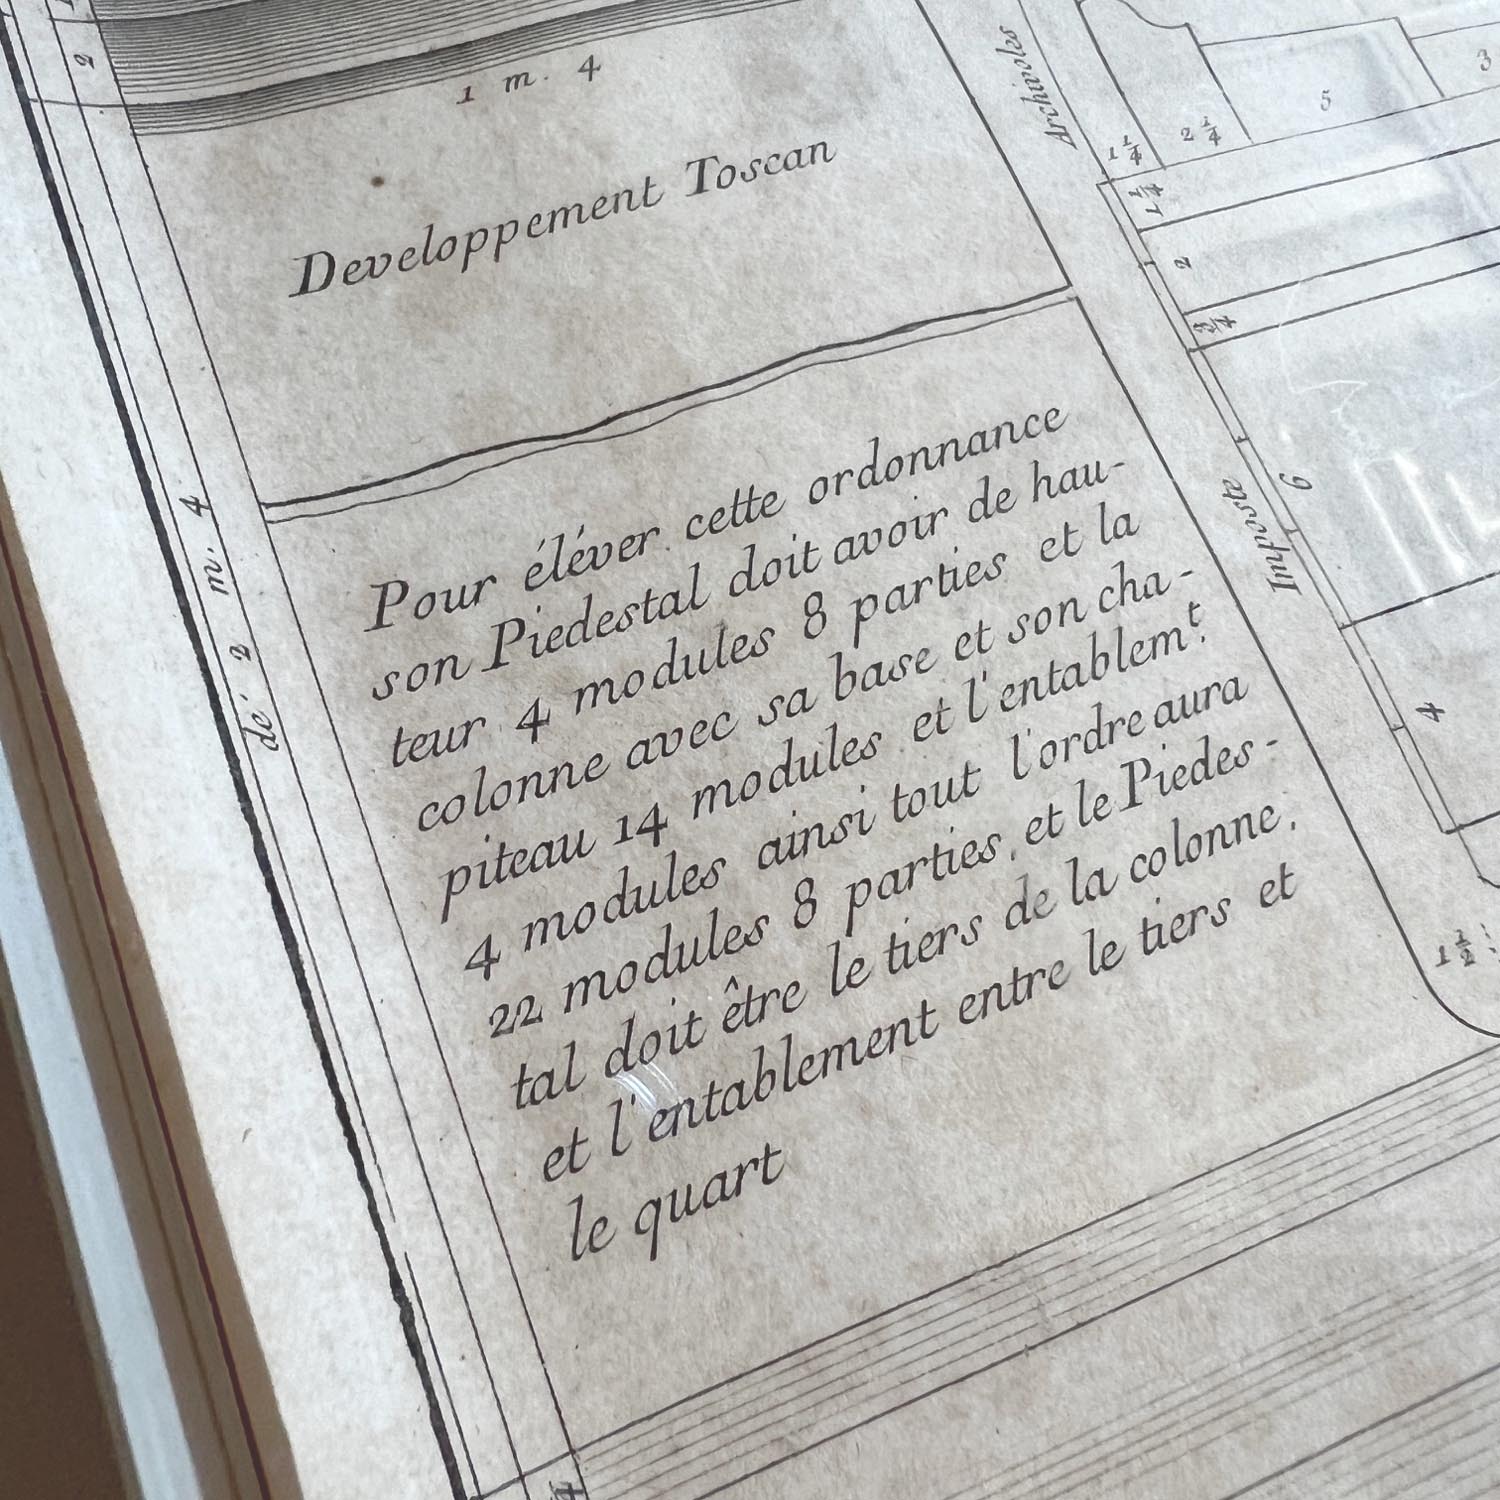 2
1 m. 4
Developpement Toscan
Pour éléver cette ordonnance
son Piedestal doit avoir de hau-
teur 4 modules 8 parties et la
colonne avec sa base et son cha-
piteau 14 modules et l'entablemt.
4 modules ainsi tout l'ordre aura
22 modules 8 parties, et le Piedes-
tal doit être le tiers de la colonne.
et l'entablement entre le tiers et
le quart
dé 2 m. 4
Archivoles
1 1/4
2 1/4
5
3
1 1/4
2
3/4
Imposte
6
4
1 1/2